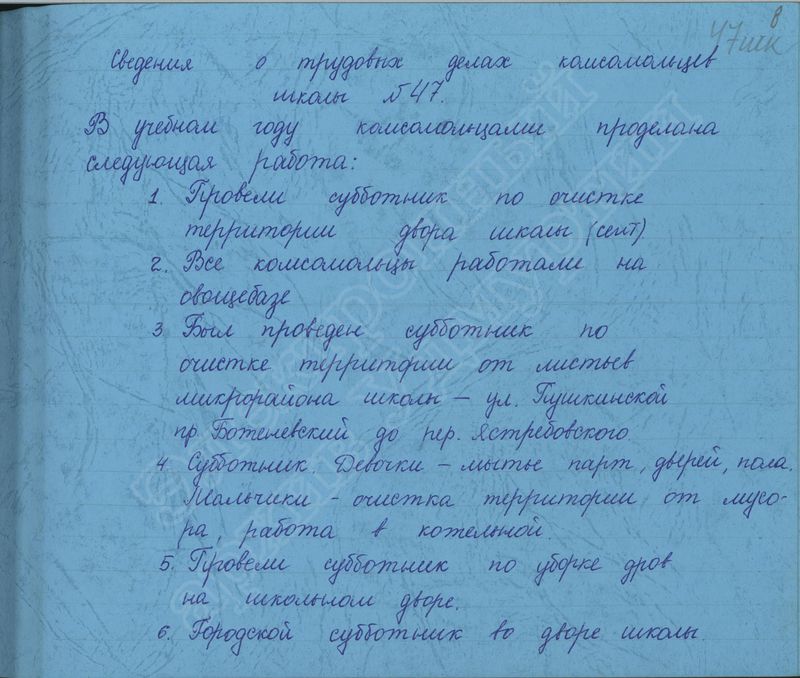 в
47 шк
Сведения о трудовых делах комсомольцев
школы № 47.
В учебном году комсомольцами проделана
следующая работа:
1. Провели субботник по очистке
территории двора школы (сент)
2. Все комсомольцы работали на
овощебазе
3. Был проведен субботник по
очистке территории от листьев
микрорайона школы – ул. Пушкинской
пр. Боженевский до пер. Ястребовского.
4. Субботник. Девочки – мытье парт, дверей, пола.
Мальчики – очистка территории от мусо-
ра, работа в котельной.
5. Провели субботник по уборке дров
на школьном дворе.
6. Городской субботник во дворе школы.